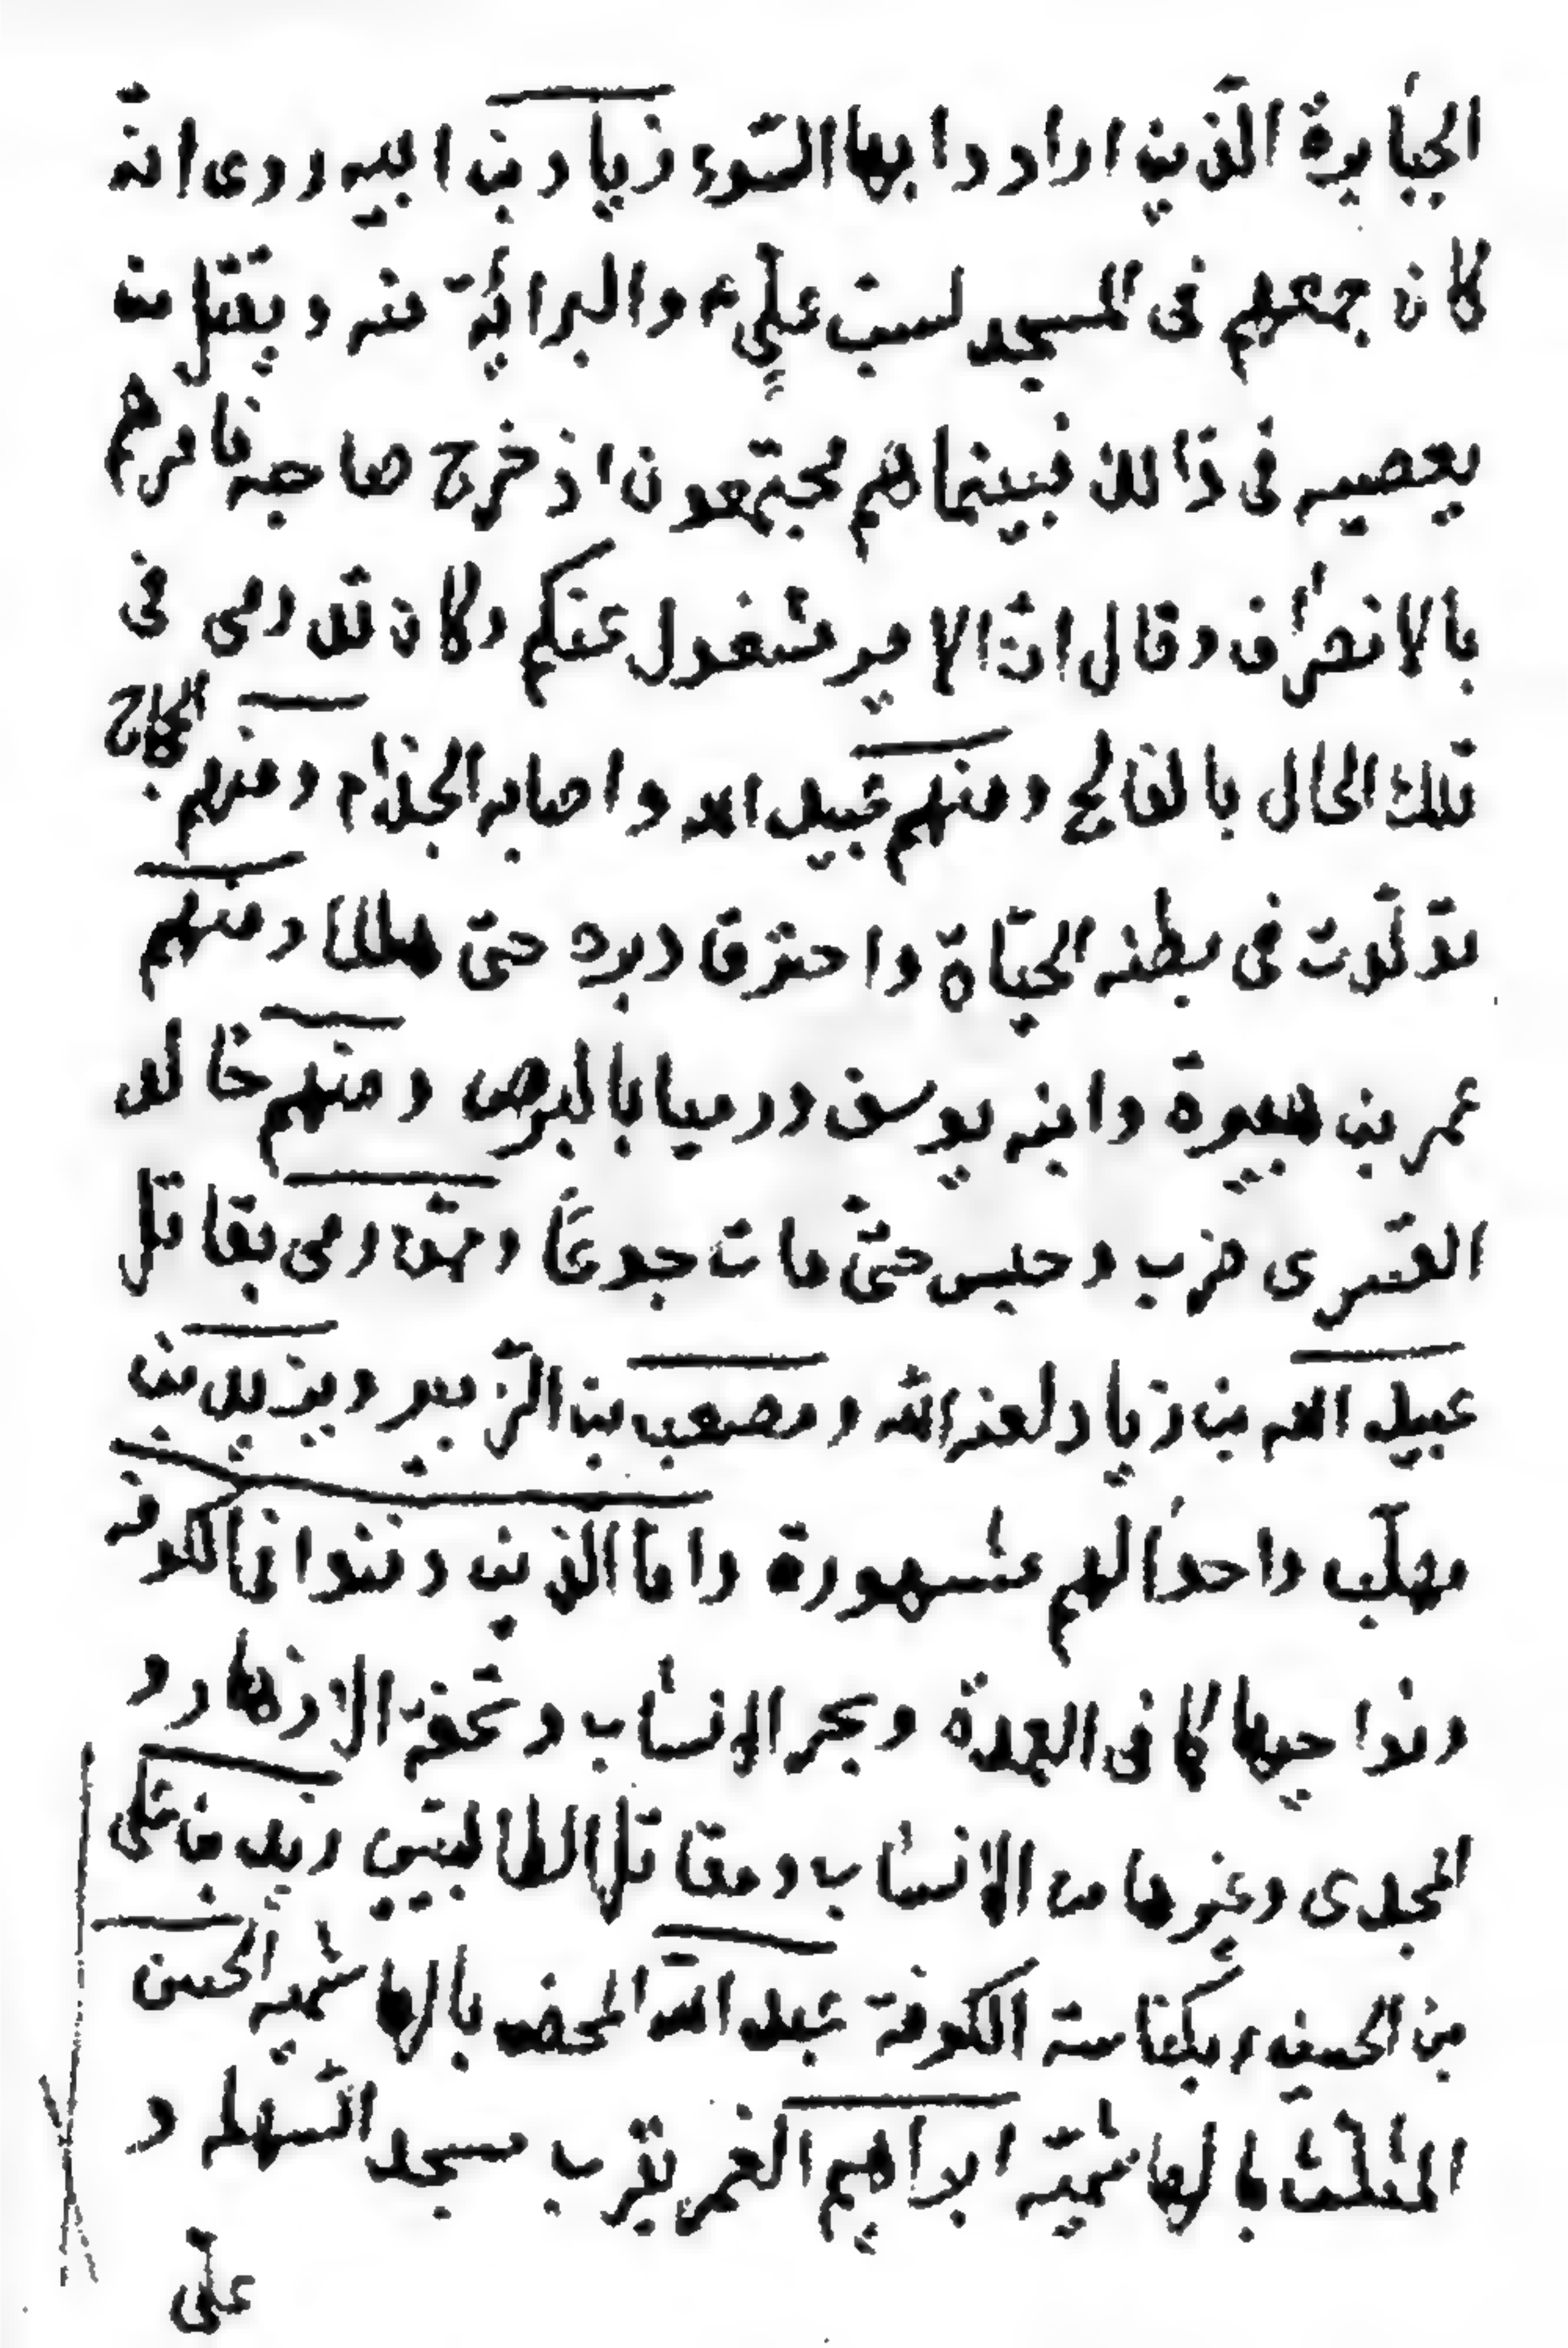 الجبٰابرة الّذين ارادوا بها السّوء زياد بن ابيه روى انّه
كان جمعهم فى المسجد لسبّ علّيٍ ع والبرائة منه و يقتل من
يعصيه فى ذٰالك فبينما هم مجتمعون اذ خرج حاجبه فامرهم
بالانصرٰاف وقال انّ الامير مشغول عنكم وكان قد رمى فى
تلك الحال بالفالج ومنهم عبيد الله واصابه الجذٰام ومنهم الحجاج
تولّدت فى بطنه الحيّاة واحترق دبره حتى هلك ومنهم
عمر بن هبيرة وابنه يوسف ورميا بالبرص ومنهم خالد
القسرى ضرب وحبس حتّى مات جوعًا وممّن رمى بقاتل
عبيد الله بن زياد لعنه الله ومصعب بن الزّبير ويزيد بن
مهلّب واحوٰالهم مشهورة واما الذين دفنوا فى الكوفه
ونواحيها كما فى العمدة وبحر الانسٰاب وتحفة الازهار و
المجدى وغيرها من الانسٰاب ومقاتل الطالبيّين زيد بن على
بن الحسين بكناسة الكوفة عبد اللّه المحض بالهاشميه الحسن
المثلّث بالهاشميّه ابرٰاهيم الغمر بقرب مسجد السّهله و
علّى